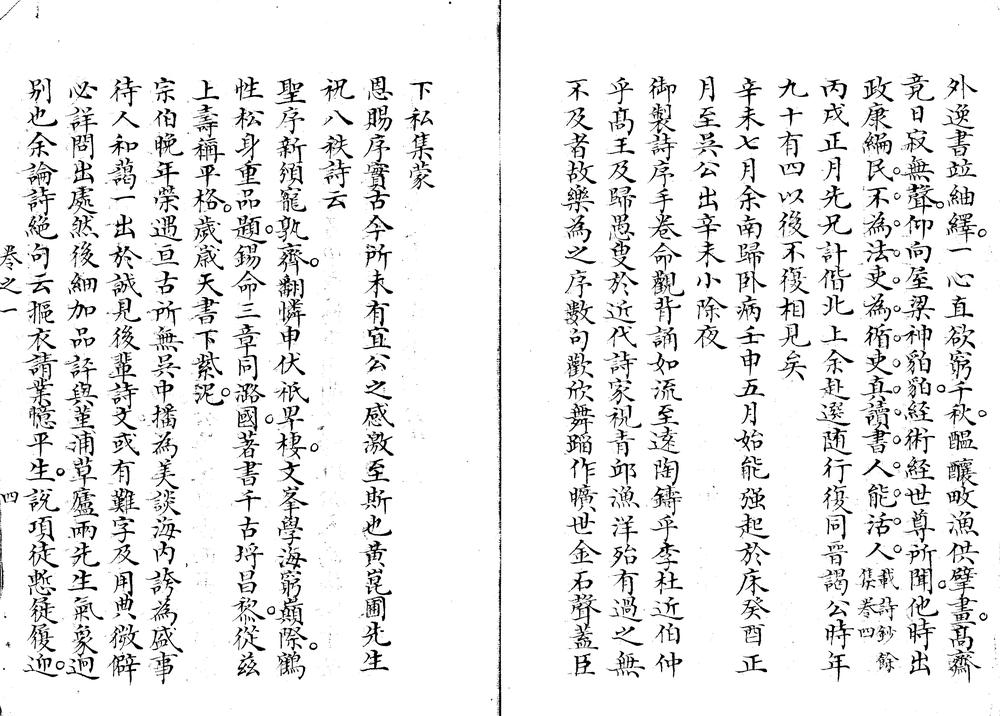 外逸書竝紬繹一心直欲窮千秋醞釀畋漁供擘畫髙齋
竟日寂無聲仰向屋梁神貌貌經術經世尊所聞他時出
政康編民不為法吏為循吏真讀書人能活人載詩鈔餘集卷四
丙戌正月先兄計偕北上余赴選随行復同晉謁公時年
九十有四以後不復相見矣
辛未七月余南歸卧病壬申五月始能强起於床癸酉正
月至吳公出辛未小除夜
御製詩序手卷命觀背誦如流至遠陶鑄乎李杜近伯仲
乎髙王及歸愚叟於近代詩家視青邱漁洋殆有過之無
不及者故樂為之序數句歡欣舞蹈作曠世金石聲蓋臣
下私集蒙
恩賜序實古今所未有宜公之感激至斯也黄崑圃先生
祝八秩詩云
聖序新頒寵孰齊翻憐申伏祇卑棲文峯學海窮巔際鶴
性松身重品題錫命三章同潞國著書千古埒昌黎從兹
上壽稱平格歲歲天書下紫泥
宗伯晚年榮遇亘古所無吳中播為美談海内誇為盛事
待人和藹一出於誠見後輩詩文或有難字及用典微僻
必詳問出處然後細加品評與堇浦草廬兩先生氣象迥
别也余論詩絶句云摳衣請業憶平生說項徒慙屣履迎
卷之一 四